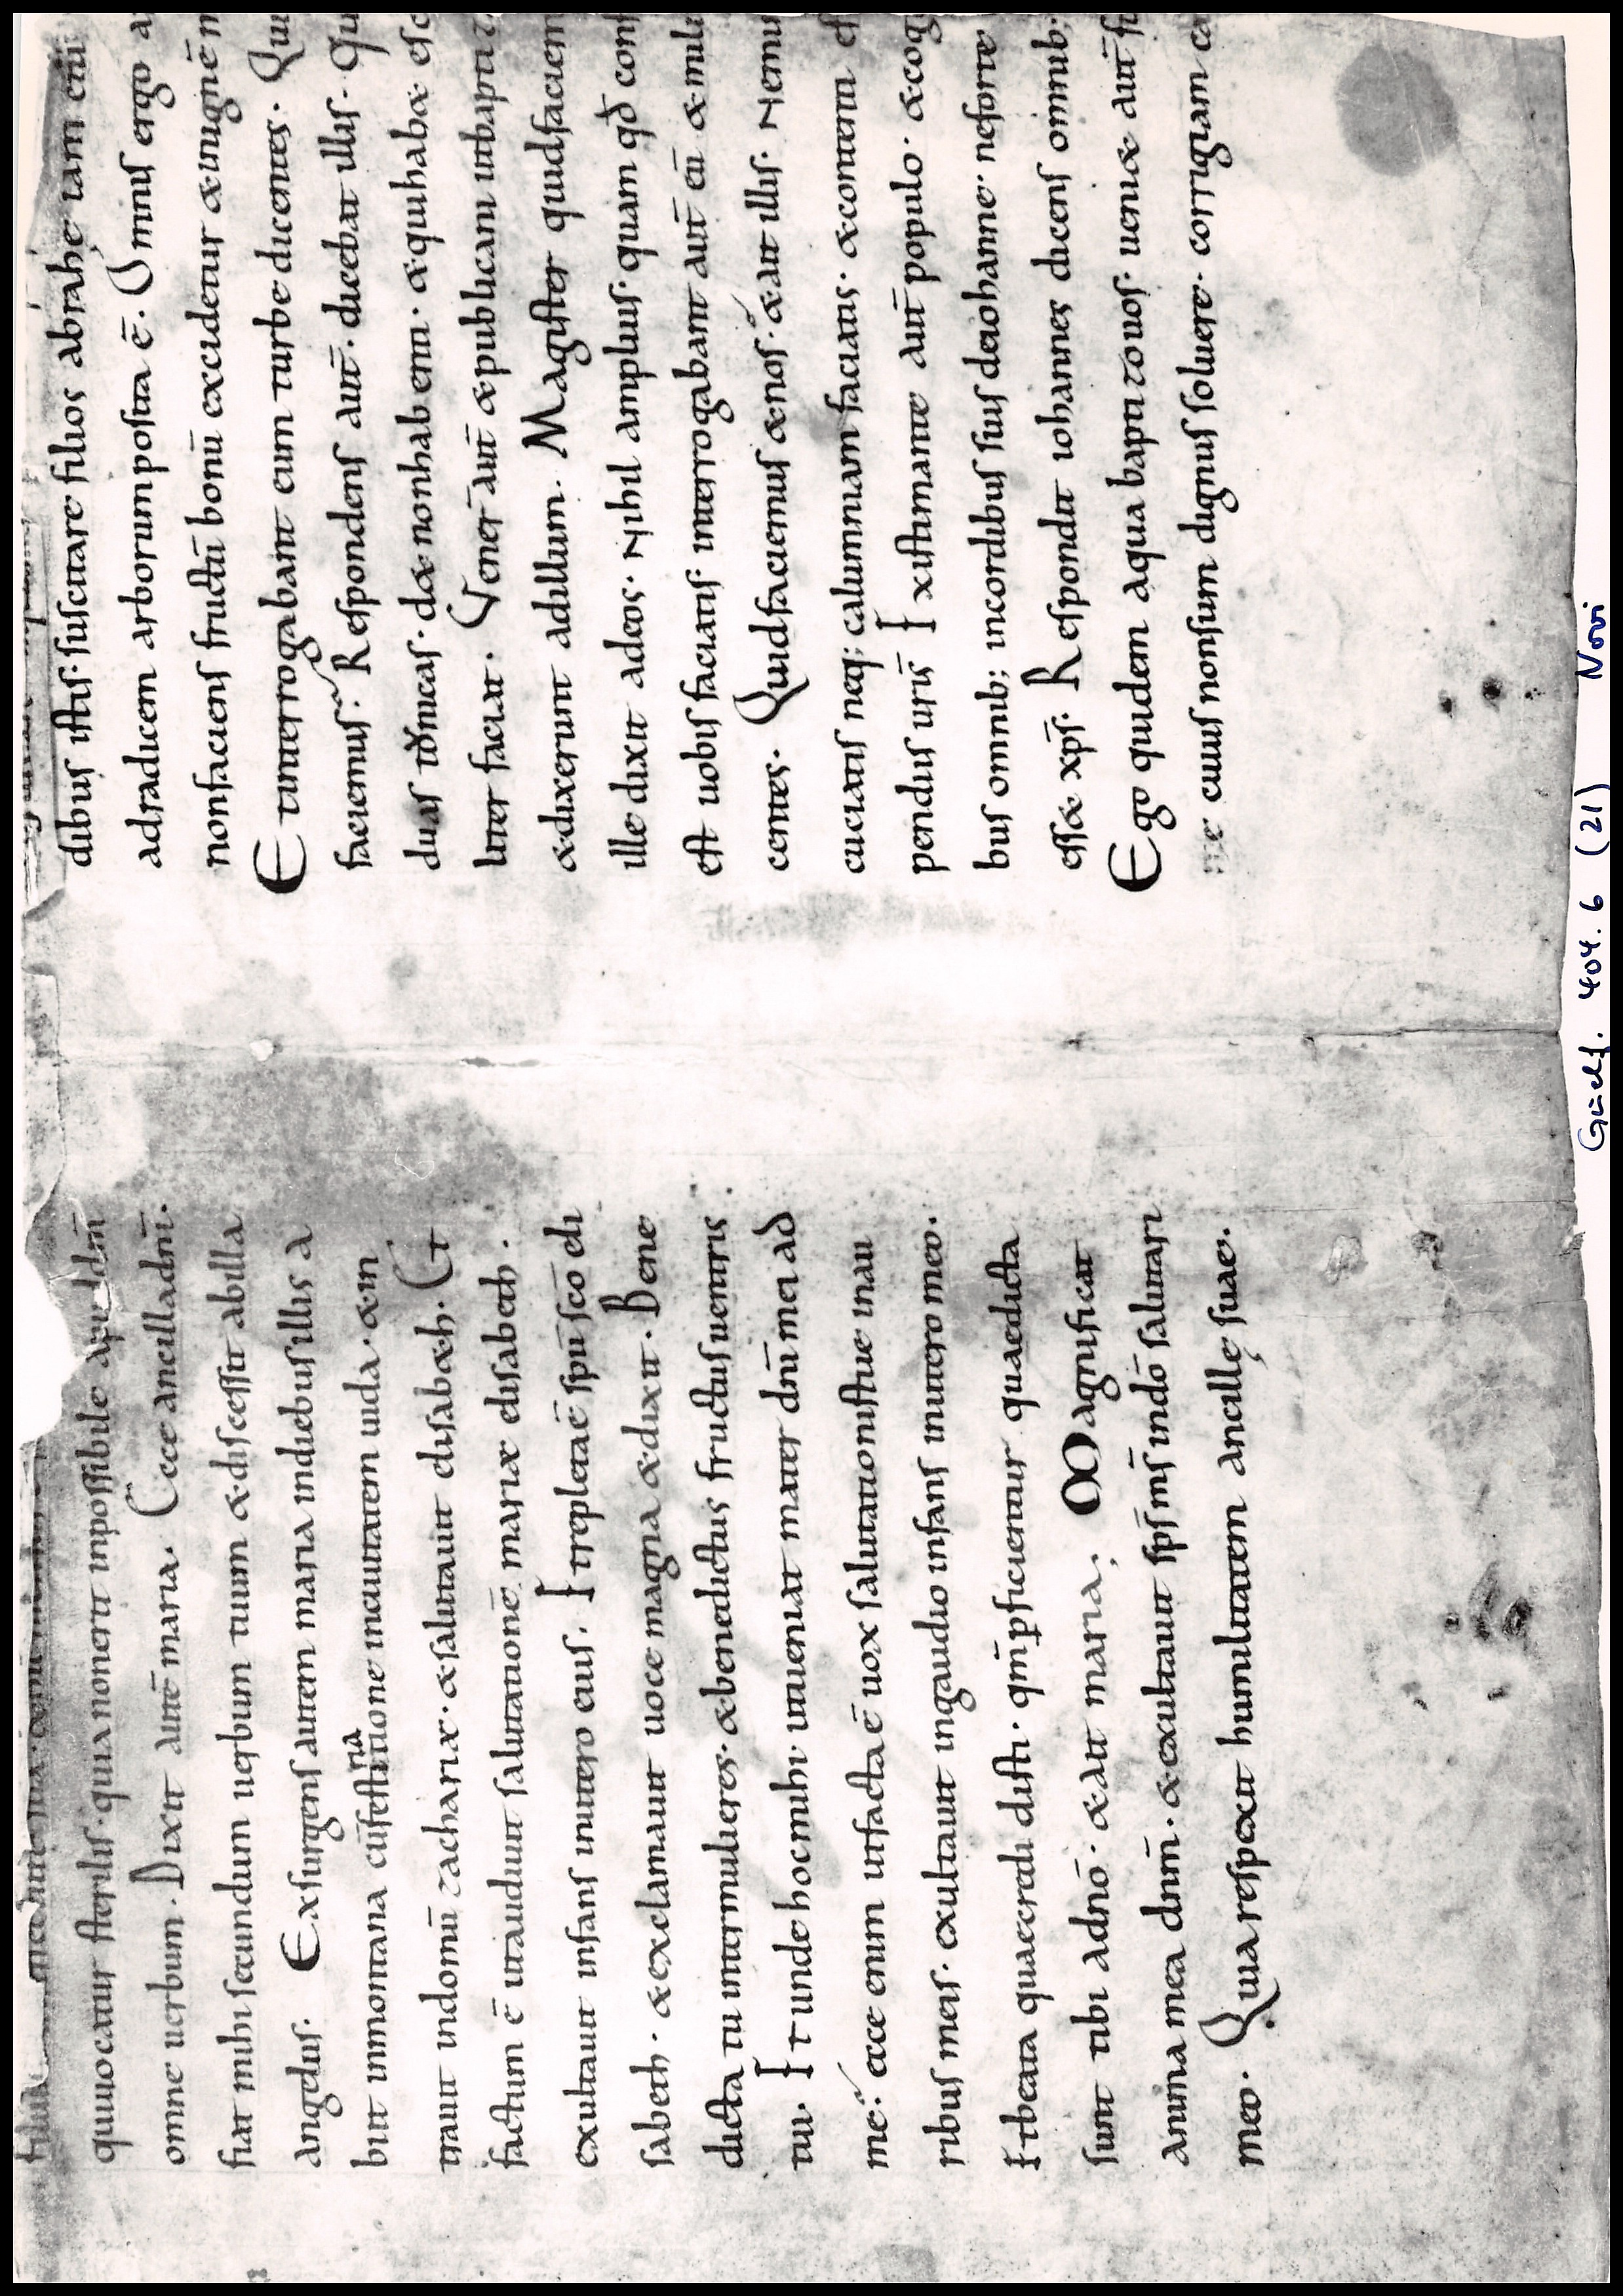 quiuocatur sterilis · quia nonerit inpossibile apud dm̄
omne uerbum · Dixit autē maria. Ecce ancilladnī.
fiat mihi secundum uerbum tuum & discessit abilla
angelus. Exsurgens autem maria indiebus illis a
biit inmontana cūfestinatione inciuitatem iuda · & in
trauit indomū zachariæ · & salutauit elisab&h. Et
factum ē utaudiuit salutationē mariæ elisabeth .
exultauit infans inutero eius. Et repletaē spū scō eli
sabeth · & exclamauit uoce magna & dixit. Bene
dicta tu intermulieres · & benedictus fructus uentris
tui. Et unde hocmihi utueniat mater dnī mei ad
me: ecce enim utfacta ē uox salutationistue inau
ribus meis · exultauit ingaudio infans inutero meo.
Et beata quaecredidisti · qm̄ p̱ficientur quaedicta
sunt tibi adnō · & ait maria; Magnificat
anima mea dnm̄ · & exultauit sp̄s ms̄ indō salutari
meo. Quia respexit humilitatem ancillę suae.
dibus istis · suscitare filios abrahę iam enī
adradicem arborumposita ē. Omnis ergo a
nonfaciens fructū bonū excidetur & inignē m
Et interrogabant eum turbe dicentes. Qui
faciemus: Respondens aut̄. dicebat illis. Qu
duas tonicas · d& nonhabenti · & quihab& esc
liter faciat. Vener̄ aut̄ & publicani utbaptiz
& dixerunt adillum. Magister quidfaciem
ille dixit adeos · Nihil amplius · quam qđ cons
est uobis faciatis: interrogabant aut̄ eū & mili
centes. Quidfaciemus & nos: & ait illis. Nemi
cuciatis neq; calumniam faciatis · & contenti es
pendiis uris̄ Existimante aut̄ populo · & cog
bus omnib; incordibus suis deiohanne · neforte
ess& xp̄s. Respondit iohannes dicens omnib;
Ego quidem aqua baptizo uos · ueni& aut̄ fo
cuius nonsum dignus soluere · corrigiam ca
Guelf. 404.6 (21) Novi